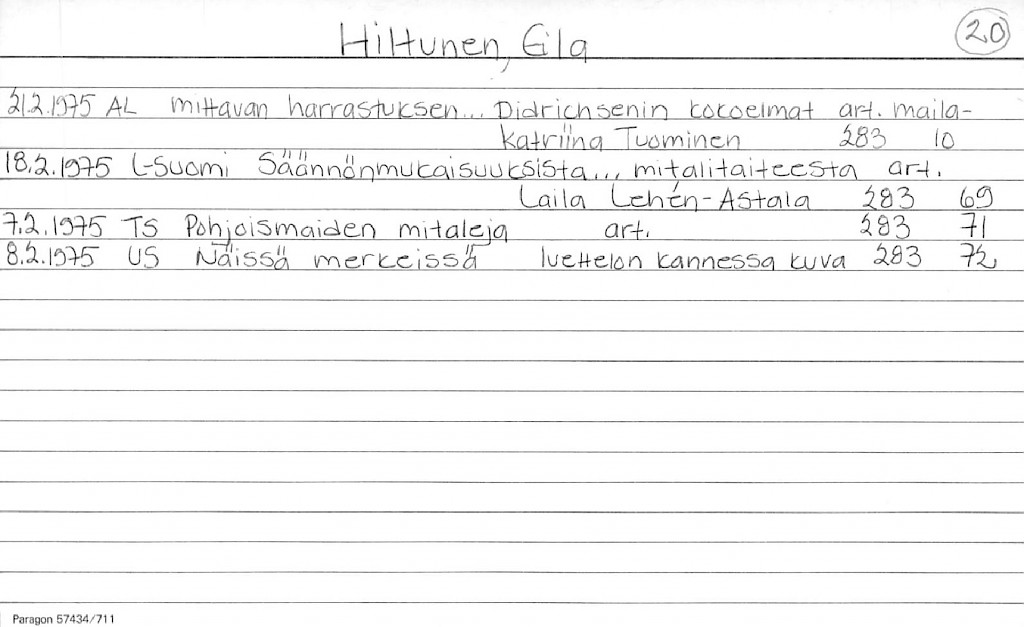 Hiltunen, Eila
20
21.2.1975 AL mittavan harrastuksen... Didrichsenin kokoelmat art. maila-
katriina Tuominen 283 10
18.2.1975 L-Suomi Säännönmukaisuuksista... mitalitaiteesta art.
Laila Lehén-Astala 283 69
7.2.1975 TS Pohjoismaiden mitaleja art. 283 71
8.2.1975 US Näissä merkeissä luettelon kannessa kuva 283 72
Paragon 57434/711